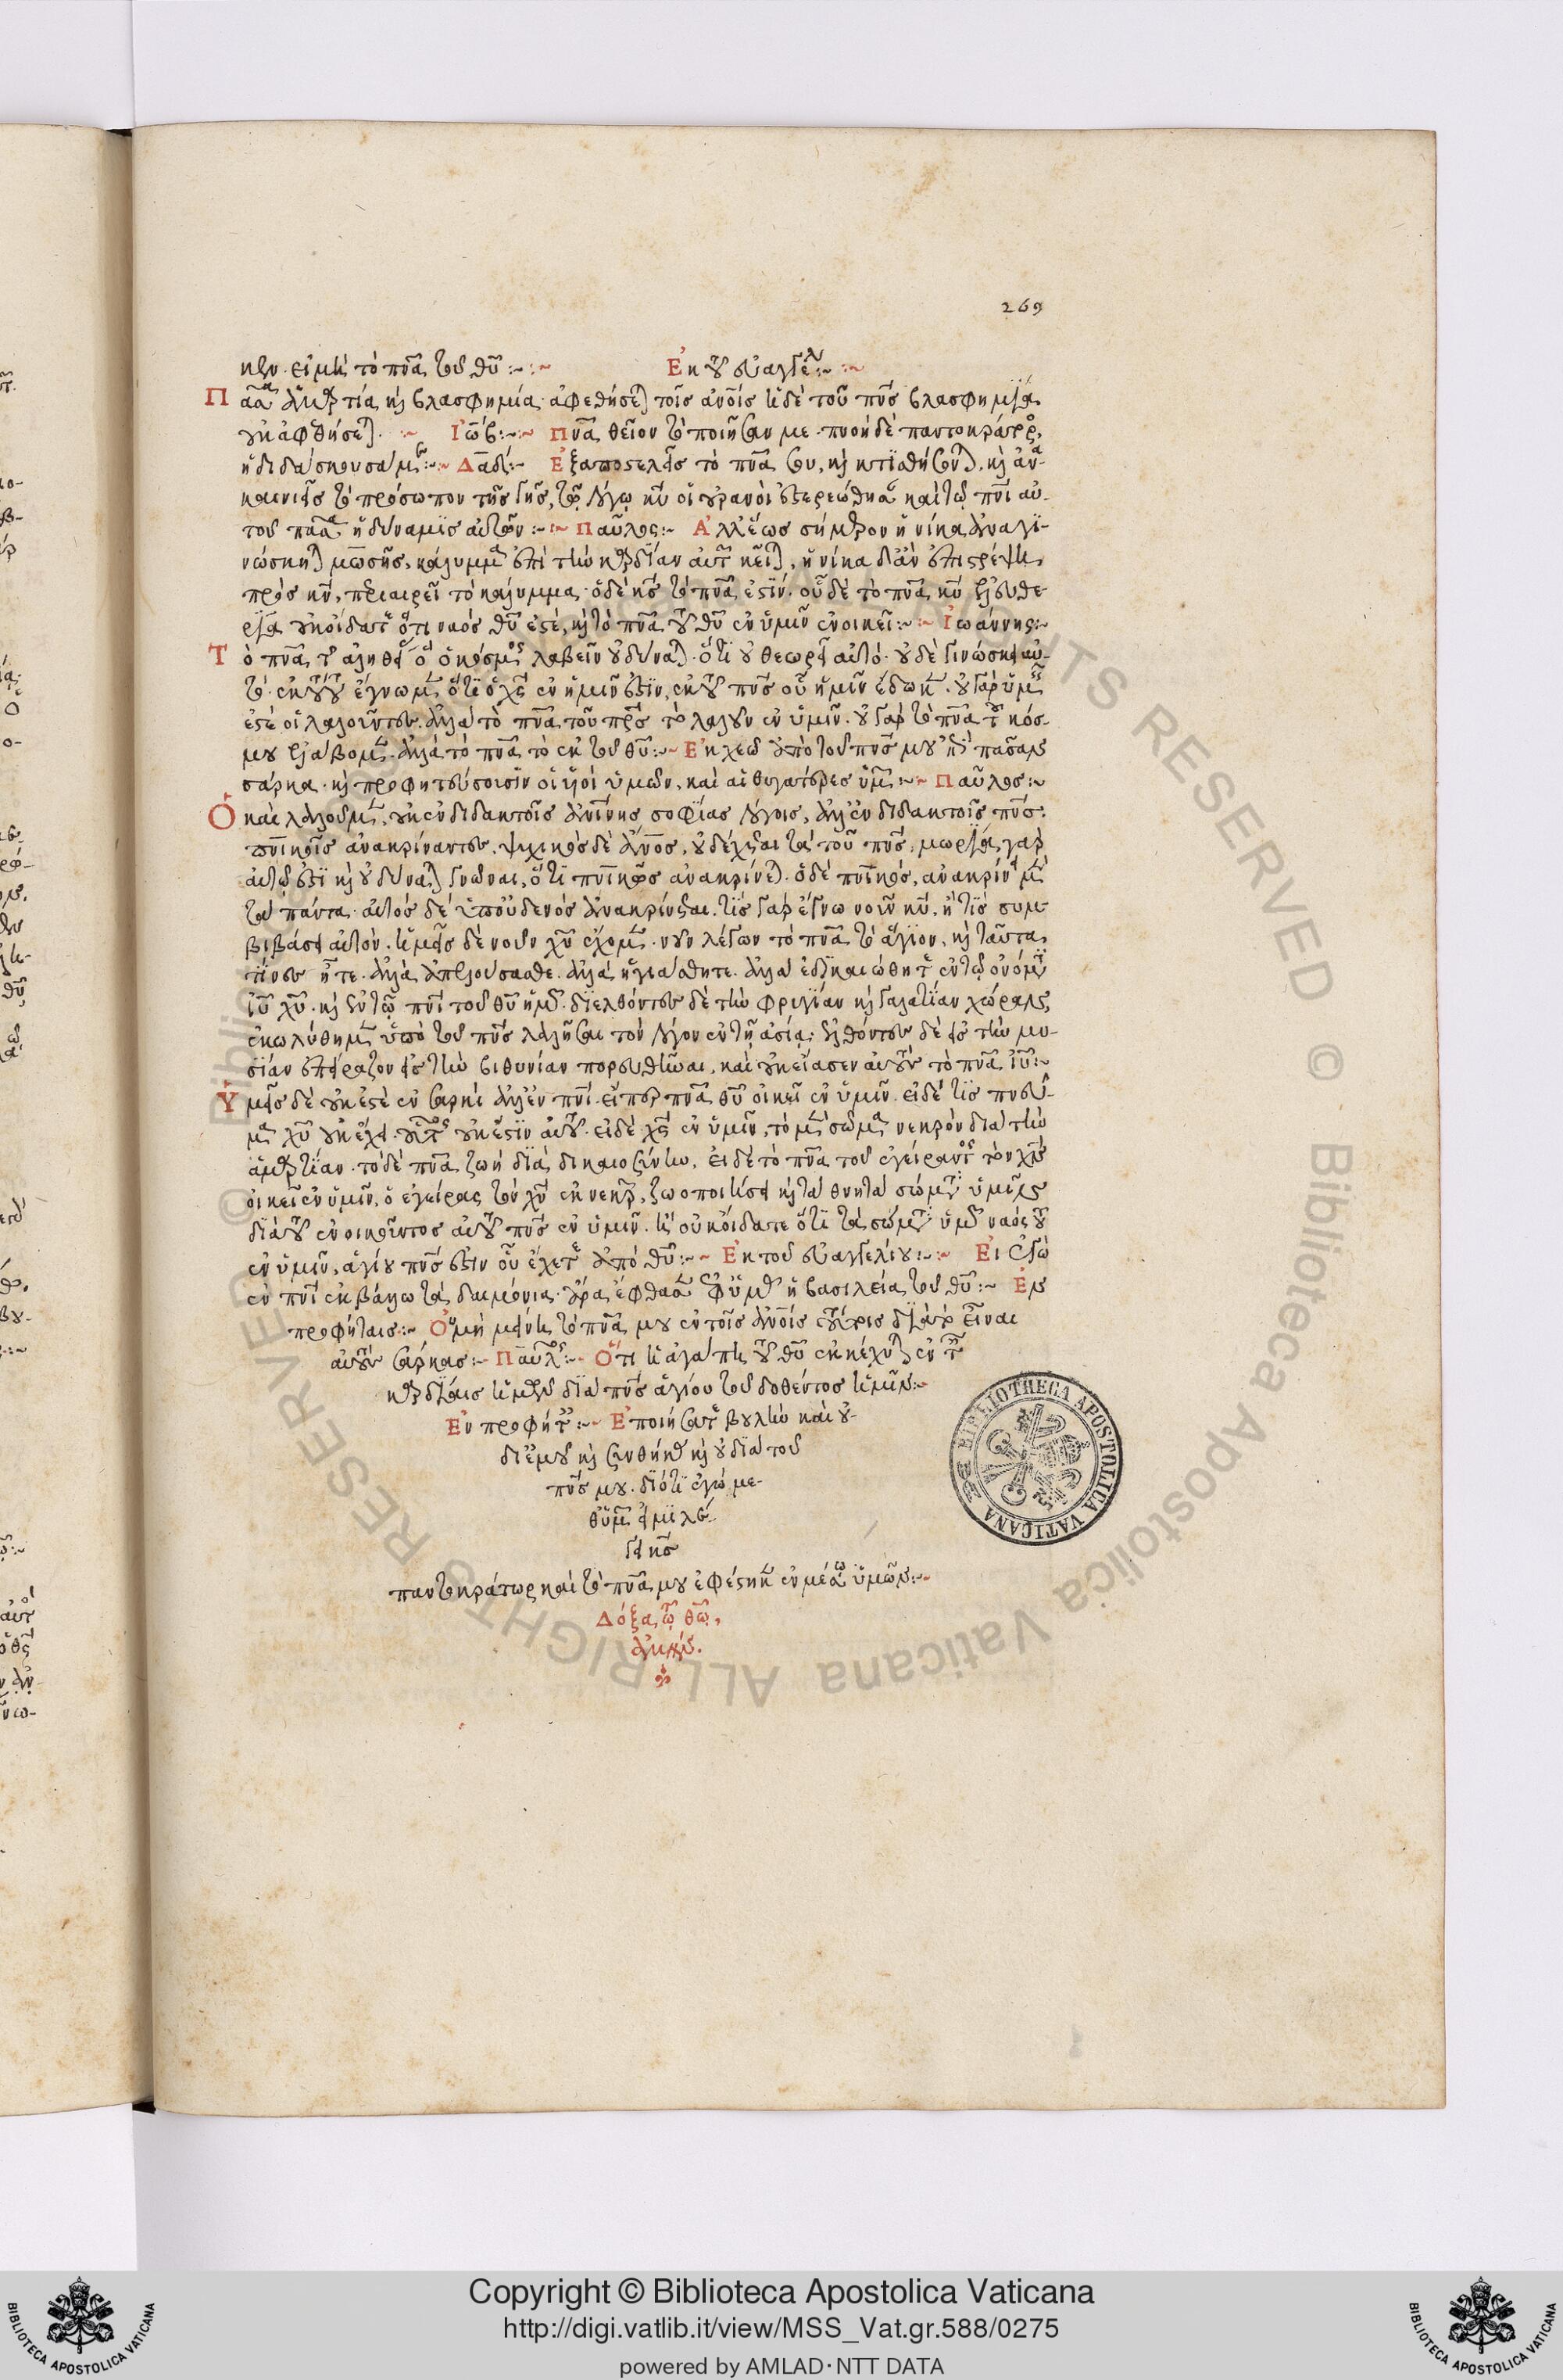 269
κεν· εἰ μὴ τὸ πνα τοῦ θυ:~ Ἐκ τοῦ εὐαγγελ:~
Πασα ἁμαρτία καὶ βλασφημία ἀφεθήσεται τοῖς ανοις ἡ δὲ τοῦ πνς βλασφημία
οὐκ ἀφεθήσεται. ~ Ἰώβ:~ Πνα θεῖον τὸ ποιῆσαν με· πνοὴ δὲ παντοκράτορος,
ἡ διδάσκουσά με:~ Δαδ:~ Ἐξαποστελεῖς τὸ πνα σου, καὶ κτισθήσονται, καὶ ἀνα-
καινιεῖς τὸ πρόσωπον τῆς γῆς, τῷ λόγῳ κυ οἱ οὐρανοὶ ἐστερεώθησαν καὶ τῷ πνι αὐ-
τοῦ πᾶσα ἡ δύναμις αὐτῶν:~ Παῦλος:~ Ἀλλ' ἕως σήμερον ἡνίκα ἀναγι-
νώσκεται μωσῆς, κάλυμμα ἐπὶ τὴν καρδίαν αὐτῶν κεῖται, ἡνίκα δ' ἂν ἐπιστρέψῃ
πρὸς κν, περιαιρεῖ τὸ κάλυμμα· ὁ δὲ κς τὸ πνα ἐστίν· οὗ δὲ τὸ πνα κυ ἐλευθε-
ρία οὐκ οἴδατε ὅτι ναὸς θυ ἐστέ, καὶ τὸ πνα τοῦ θυ ἐν ὑμῖν ἐνοικεῖ:~ Ἰωάννης:~
Τὸ πνα τῆς ἀληθείας ὃ ὁ κόσμος λαβεῖν οὐ δύναται· ὅτι οὐ θεωρεῖ αὐτό· οὐδὲ γινώσκει αὐ-
τό· ἐκ τούτου ἔγνωμεν ὅτι ὁ χς ἐν ἡμῖν ἐστιν, ἐκ τοῦ πνς οὗ ἡμῖν ἔδωκεν· οὐ γὰρ ὑμεῖς
ἐστὲ οἱ λαλοῦντες, ἀλλὰ τὸ πνα τοῦ πρς τὸ λαλοῦν ἐν ὑμῖν· οὐ γὰρ τὸ πνα τοῦ κόσ-
μου ἐλάβομεν· ἀλλὰ τὸ πνα τὸ ἐκ τοῦ θυ:~ Ἐκχεῶ ἀπὸ τοῦ πνς μου ἐπὶ πᾶσαν
σάρκα· καὶ προφητεύσουσιν οἱ υἱοὶ ὑμῶν, καὶ αἱ θυγατέρες ὑμῶν:~ Παῦλος:~
Ὃ καὶ λαλοῦμεν, οὐκ ἐν διδακτοῖς ἀνίνης σοφίας λόγοις, ἀλλ' ἐν διδακτοῖς πνς·
πνικοῖς ἀνακρίνοντες, ψυχικὸς δὲ ἄνος, οὐ δέχεται τὰ τοῦ πνς, μωρία γὰρ
αὐτῷ ἐστι καὶ οὐ δύναται γνῶναι, ὅτι πνικῶς ἀνακρίνεται· ὁ δὲ πνικός, ἀνακρίνει μὲν
τὰ πάντα· αὐτὸς δὲ ὑπ' οὐδενὸς ἀνακρίνεται. τίς γὰρ ἔγνω νοῦν κυ, ἢ τίς συμ-
βιβάσει αὐτόν. ἡμεῖς δὲ νοῦν χυ ἔχομεν· νῦν λέγων τὸ πνα τὸ ἅγιον, καὶ ταῦτα
τινὲς ἦτε· ἀλλὰ ἀπελούσασθε. ἀλλὰ ἡγιάσθητε. ἀλλὰ ἐδικαιώθητε ἐν τῷ ὀνόματι
ιυ χυ· καὶ ἐν τῷ πνι τοῦ θυ ἡμῶν· διελθόντες δὲ τὴν φρυγίαν καὶ γαλατίαν χώραν
ἐκωλύθημεν ὑπὸ τοῦ πνς λαλῆσαι τὸν λόγον ἐν τῇ ἀσίᾳ· ἐλθόντες δὲ εἰς τὴν μυ-
σίαν ἐπείραζον εἰς τὴν βιθυνίαν πορευθῆναι, καὶ οὐκ εἴασεν αὐτοὺς τὸ πνα ιυ:~
Ὑμεῖς δὲ οὐκ ἐστὲ ἐν σαρκὶ ἀλλ' ἐν πνι· εἴπερ πνα θυ οἰκεῖ ἐν ὑμῖν. εἰ δέ τις πνεῦ-
μα χυ οὐκ ἔχει· οὗτος οὐκ ἔστιν αὐτοῦ· εἰ δὲ χς ἐν ὑμῖν, τὸ μὲν σῶμα νεκρὸν διὰ τὴν
ἁμαρτίαν· τὸ δὲ πνα ζωὴ διὰ δικαιοσύνην. εἰ δὲ τὸ πνα τοῦ ἐγείραντος τὸν χν
οἰκεῖ ἐν ὑμῖν, ὁ ἐγείρας τὸν χν ἐκ νεκρῶν, ζωοποιήσει καὶ τὰ θνητὰ σώματα ὑμῶν
διὰ τοῦ ἐνοικοῦντος αὐτοῦ πνς ἐν ὑμῖν. ἢ οὐκ οἴδατε ὅτι τὰ σώματα ὑμῶν ναὸς τοῦ
ἐν ὑμῖν, ἁγίου πνς ἐστιν οὗ ἔχετε ἀπὸ θυ:~ Ἐκ τοῦ εὐαγγελίου:~ Εἰ ἐγὼ
ἐν πνι ἐκβάλλω τὰ δαιμόνια· ἄρα ἔφθασεν ἐφ' ὑμᾶς ἡ βασιλεία τοῦ θυ:~ Ἐν
προφήταις:~ Οὐ μὴ μείνῃ τὸ πνα μου ἐν τοῖς ἀνοις τούτοις διὰ τὸ εἶναι
αὐτοὺς σάρκας:~ Παῦλος:~ Ὅτι ἡ ἀγάπη τοῦ θυ ἐκκέχυται ἐν ταῖς
καρδίαις ἡμῶν διὰ πνς ἁγίου τοῦ δοθέντος ἡμῖν:~
Ἐν προφήταις:~ Ἐποιήσατε βουλὴν καὶ οὐ
δι' ἐμοῦ καὶ συνθήκας καὶ οὐ διὰ τοῦ
πνς μου. διότι ἐγὼ με-
θ' ὑμῶν εἰμι λέ-
γει κς
παντοκράτωρ καὶ τὸ πνα μου ἐφέστηκεν ἐν μέσῳ ὑμῶν:~
Δόξα τῷ θῶ,
ἀμήν.
BIBLIOTHECA APOSTOLICA VATICANA
Copyright © Biblioteca Apostolica Vaticana
http://digi.vatlib.it/view/MSS_Vat.gr.588/0275
powered by AMLAD·NTT DATA